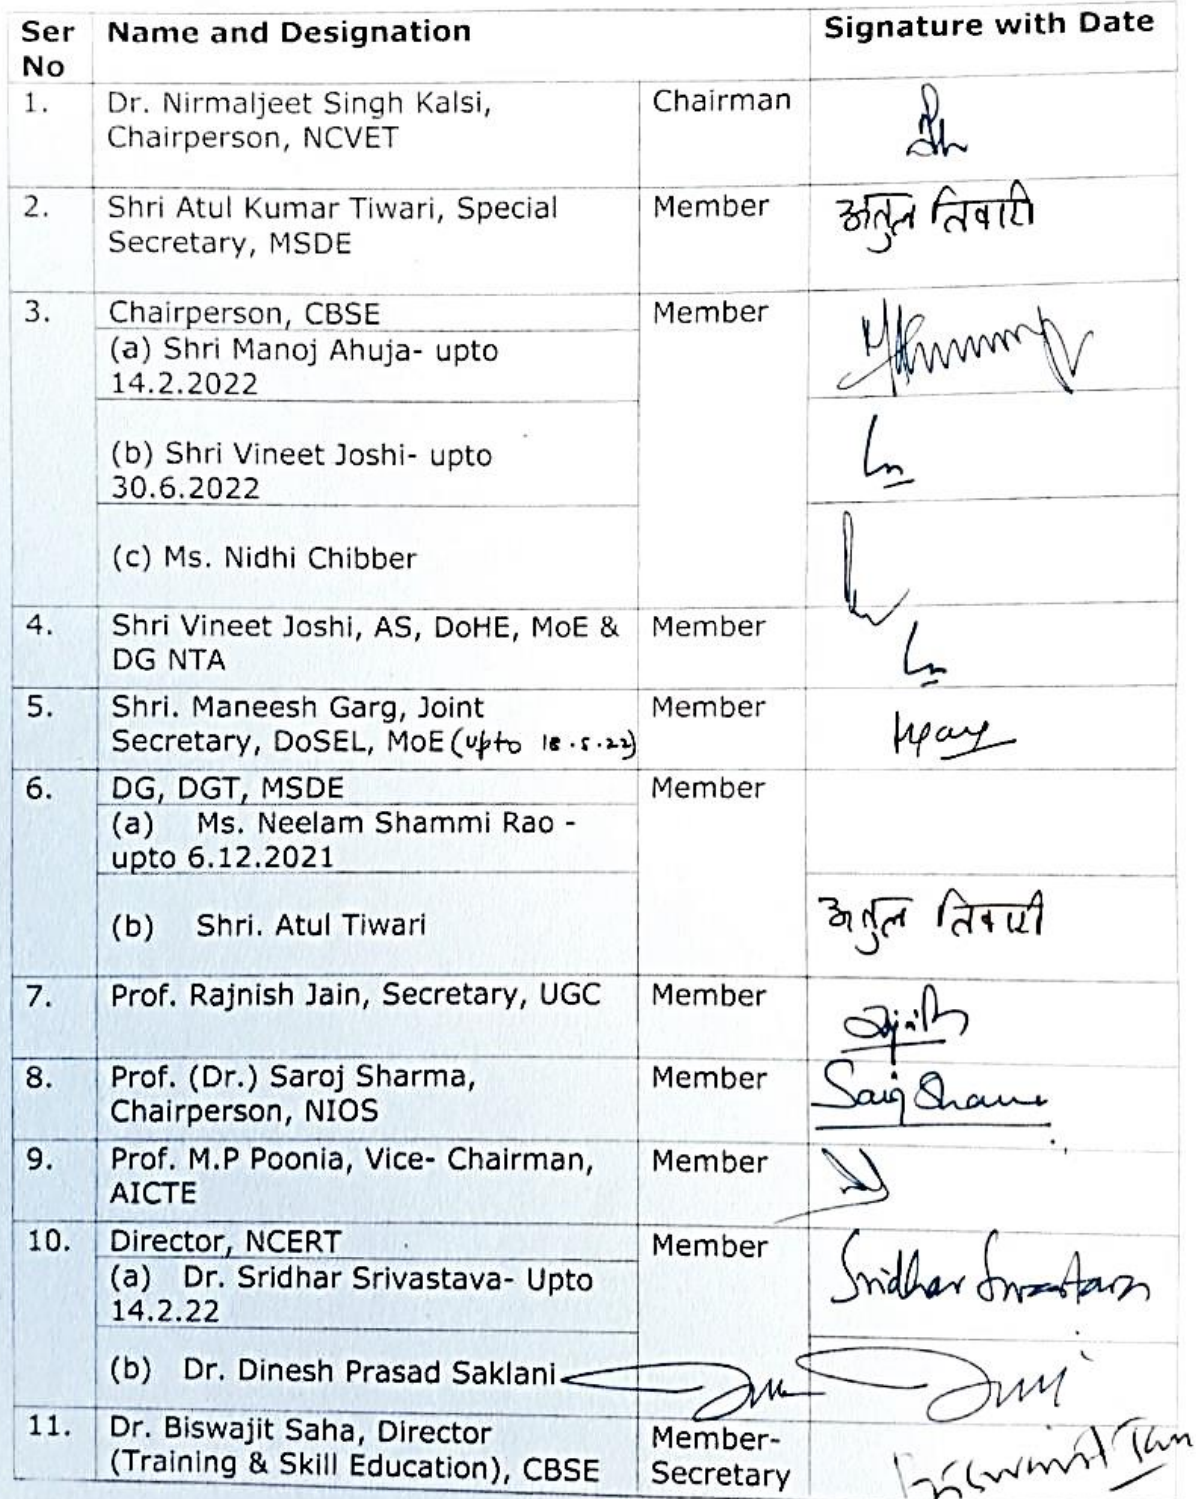 Ser No Name and Designation Signature with Date
1. Dr. Nirmaljeet Singh Kalsi, Chairman
Chairperson, NCVET
2. Shri Atul Kumar Tiwari, Special Member अतुल तिवारी
Secretary, MSDE
3. Chairperson, CBSE Member
(a) Shri Manoj Ahuja- upto
14.2.2022
(b) Shri Vineet Joshi- upto
30.6.2022
(c) Ms. Nidhi Chibber
4. Shri Vineet Joshi, AS, DoHE, MoE & Member
DG NTA
5. Shri. Maneesh Garg, Joint Member
Secretary, DoSEL, MoE (upto 18.5.22)
6. DG, DGT, MSDE Member
(a) Ms. Neelam Shammi Rao -
upto 6.12.2021
(b) Shri. Atul Tiwari अतुल तिवारी
7. Prof. Rajnish Jain, Secretary, UGC Member
8. Prof. (Dr.) Saroj Sharma, Member
Chairperson, NIOS
9. Prof. M.P Poonia, Vice- Chairman, Member
AICTE
10. Director, NCERT Member
(a) Dr. Sridhar Srivastava- Upto Sridhar Srivastava
14.2.22
(b) Dr. Dinesh Prasad Saklani
11. Dr. Biswajit Saha, Director Member-
(Training & Skill Education), CBSE Secretary